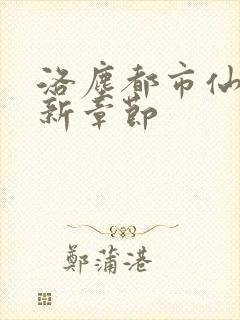 洛塵都市仙
新章節
鄭蒲港